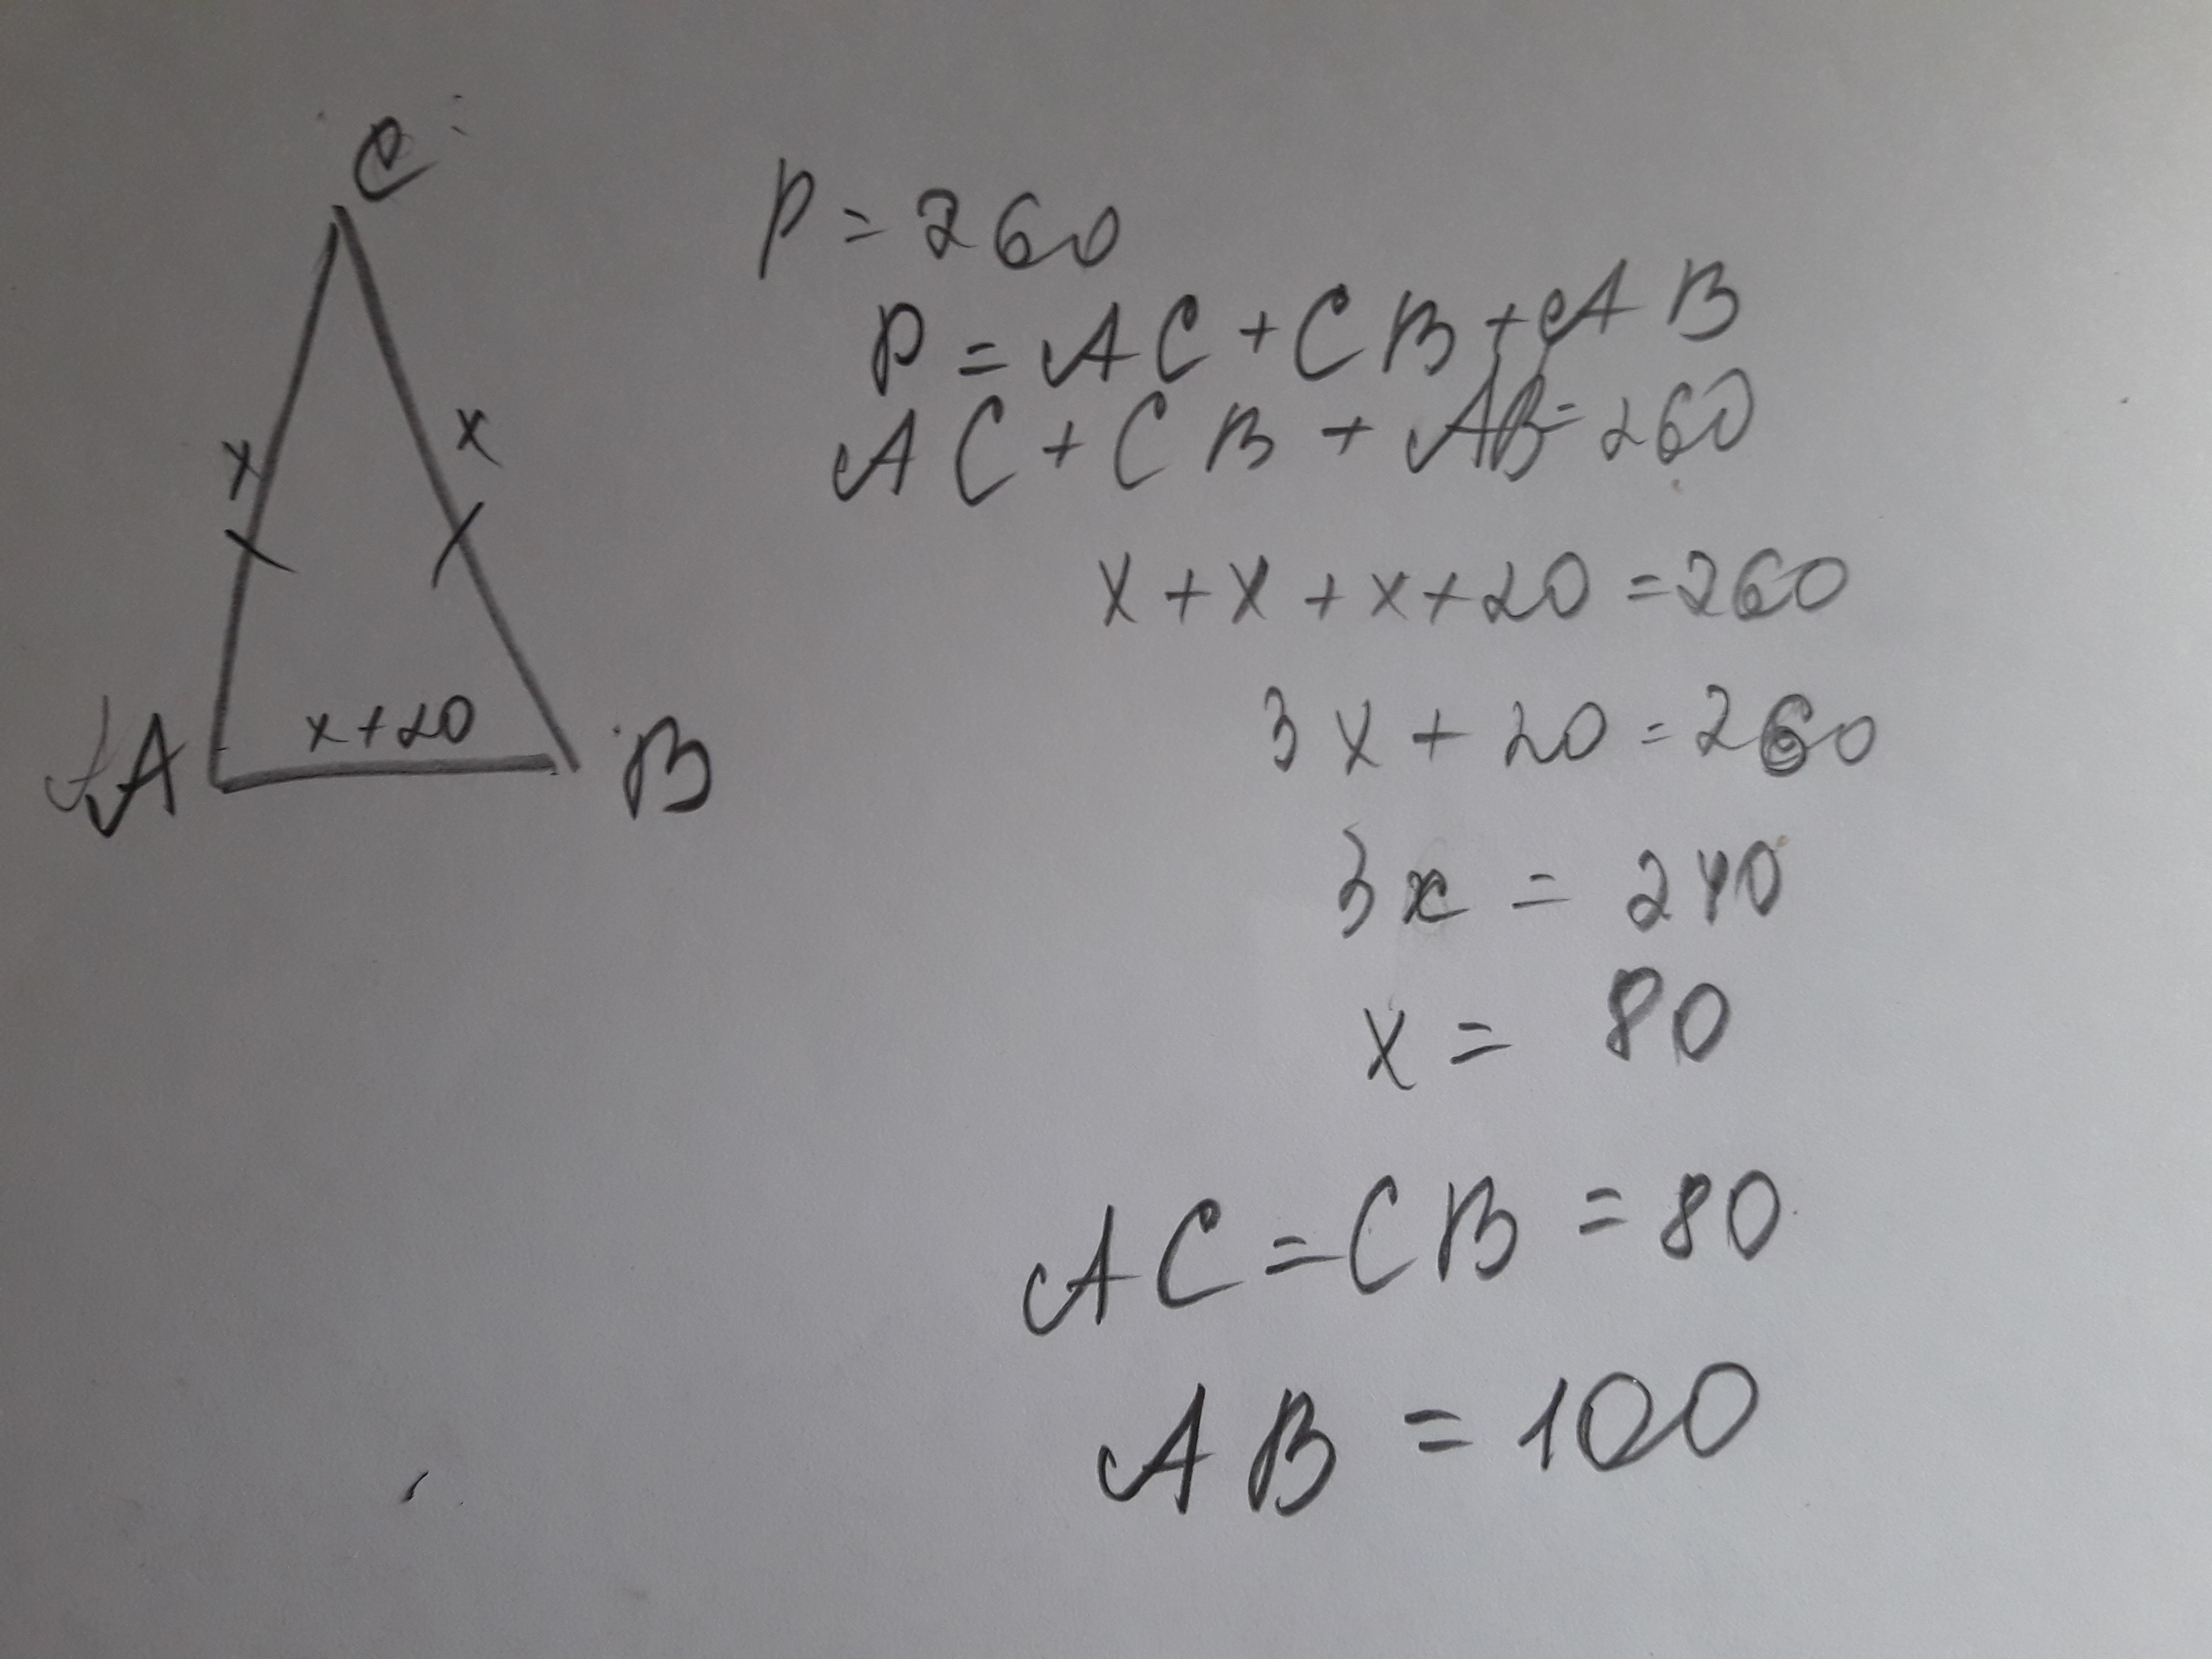 C
x
x
x+20
A
B
P=260
P=AC+CB+AB
AC+CB+AB=260
x+x+x+20=260
3x+20=260
3x=240
x=80
AC=CB=80
AB=100